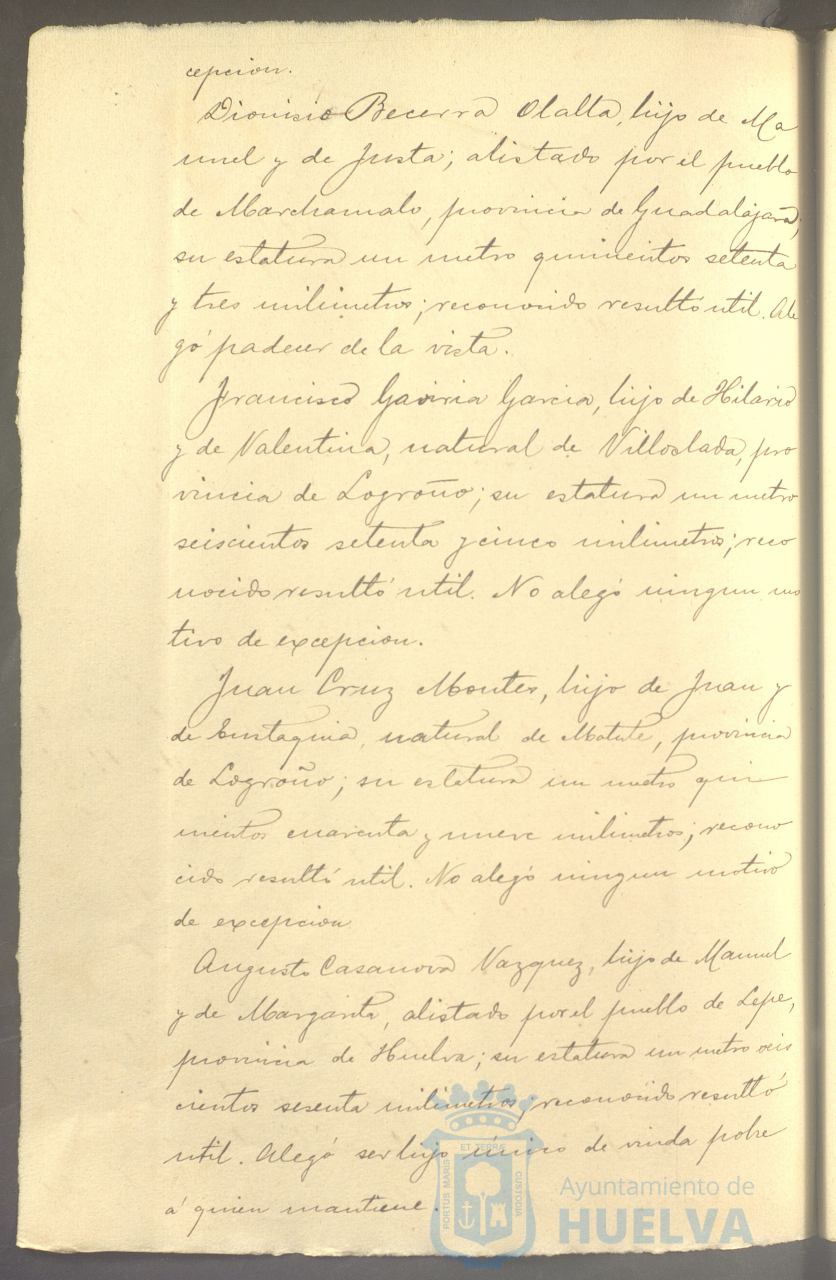 cepcion.
Dionisio Becerra Olalla, hijo de Ma
nuel y de Justa; alistado por el pueblo
de Marchamalo, provincia de Guadalajara;
su estatura un metro quinientos setenta
y tres milimetros; reconocido resultó util. Ale
gó padecer de la vista.
Francisco Gaviria Garcia, hijo de Hilario
y de Valentina, natural de Villoslada, pro
vincia de Logroño; su estatura un metro
seiscientos setenta y cinco milimetros; reco
nocido resultó util. No alegó ningun mo
tivo de excepcion.
Juan Cruz Montes, hijo de Juan y
de Eustaquia, natural de Matute, provincia
de Logroño; su estatura un metro quin
nientos cuarenta y nueve milimetros; recono
cido resultó util. No alegó ningun motivo
de excepcion
Augusto Casanova Vazquez, hijo de Manuel
y de Margarita, alistado por el pueblo de Lepe,
provincia de Huelva; su estatura un metro seis
cientos sesenta milimetros, reconocido resultó
util. Alegó ser hijo único de viuda pobre
á quien mantiene.
PORTUS MARIS ET TERRAE CUSTODIA
Ayuntamiento de
HUELVA